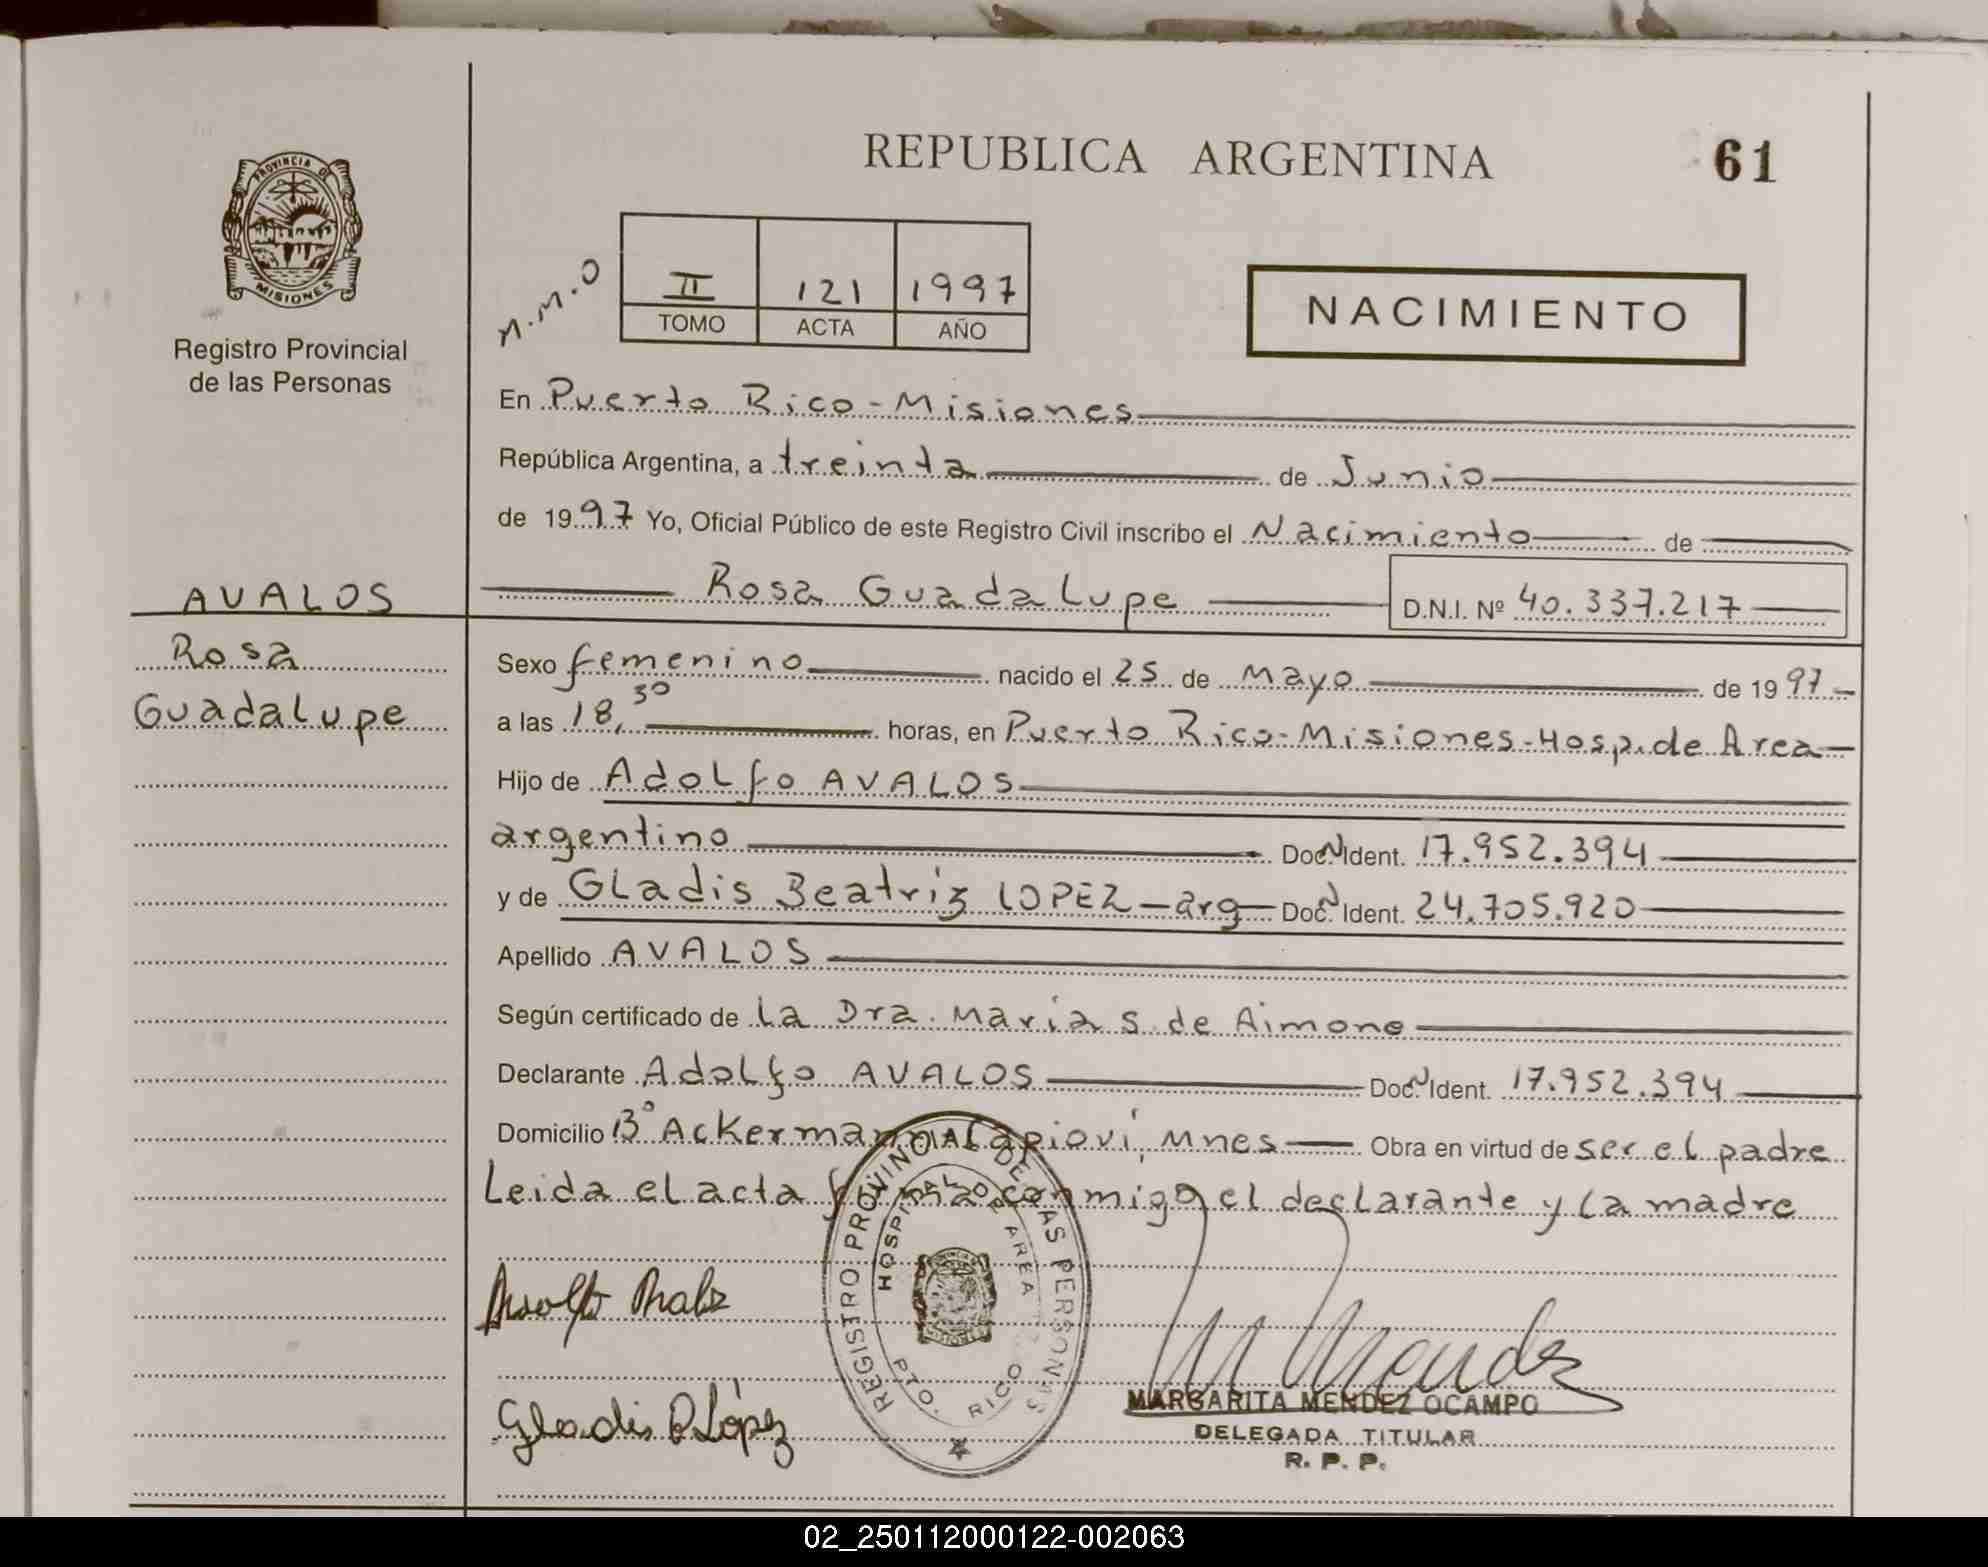 REPUBLICA ARGENTINA
61
PROVINCIA DE
MISIONES
Registro Provincial
de las Personas
M.M.O
II 121 1997
TOMO ACTA AÑO
NACIMIENTO
En Puerto Rico - Misiones
República Argentina, a treinta de Junio
de 1997 Yo, Oficial Público de este Registro Civil inscribo el Nacimiento de
AVALOS
Rosa Guadalupe D.N.I. Nº 40.337.217
Rosa
Guadalupe
Sexo femenino nacido el 25 de Mayo de 1997
a las 18,30 horas, en Puerto Rico - Misiones - Hosp. de Area
Hijo de Adolfo AVALOS
argentino Doc. Ident. 17.952.394
y de Gladis Beatriz LOPEZ - arg Doc. Ident. 24.705.920
Apellido AVALOS
Según certificado de la Dra. Maria S. de Aimone
Declarante Adolfo AVALOS Doc. Ident. 17.952.394
Domicilio Bº Ackermann Capiovi, Mnes Obra en virtud de ser el padre
Leida el acta firma conmigo el declarante y la madre
REGISTRO PROVINCIAL DE LAS PERSONAS
HOSPITAL DE AREA
PTO. RICO
MISIONES
Gladis B López
M Mendez
MARGARITA MENDEZ OCAMPO
DELEGADA TITULAR
R. P. P.
02_250112000122-002063